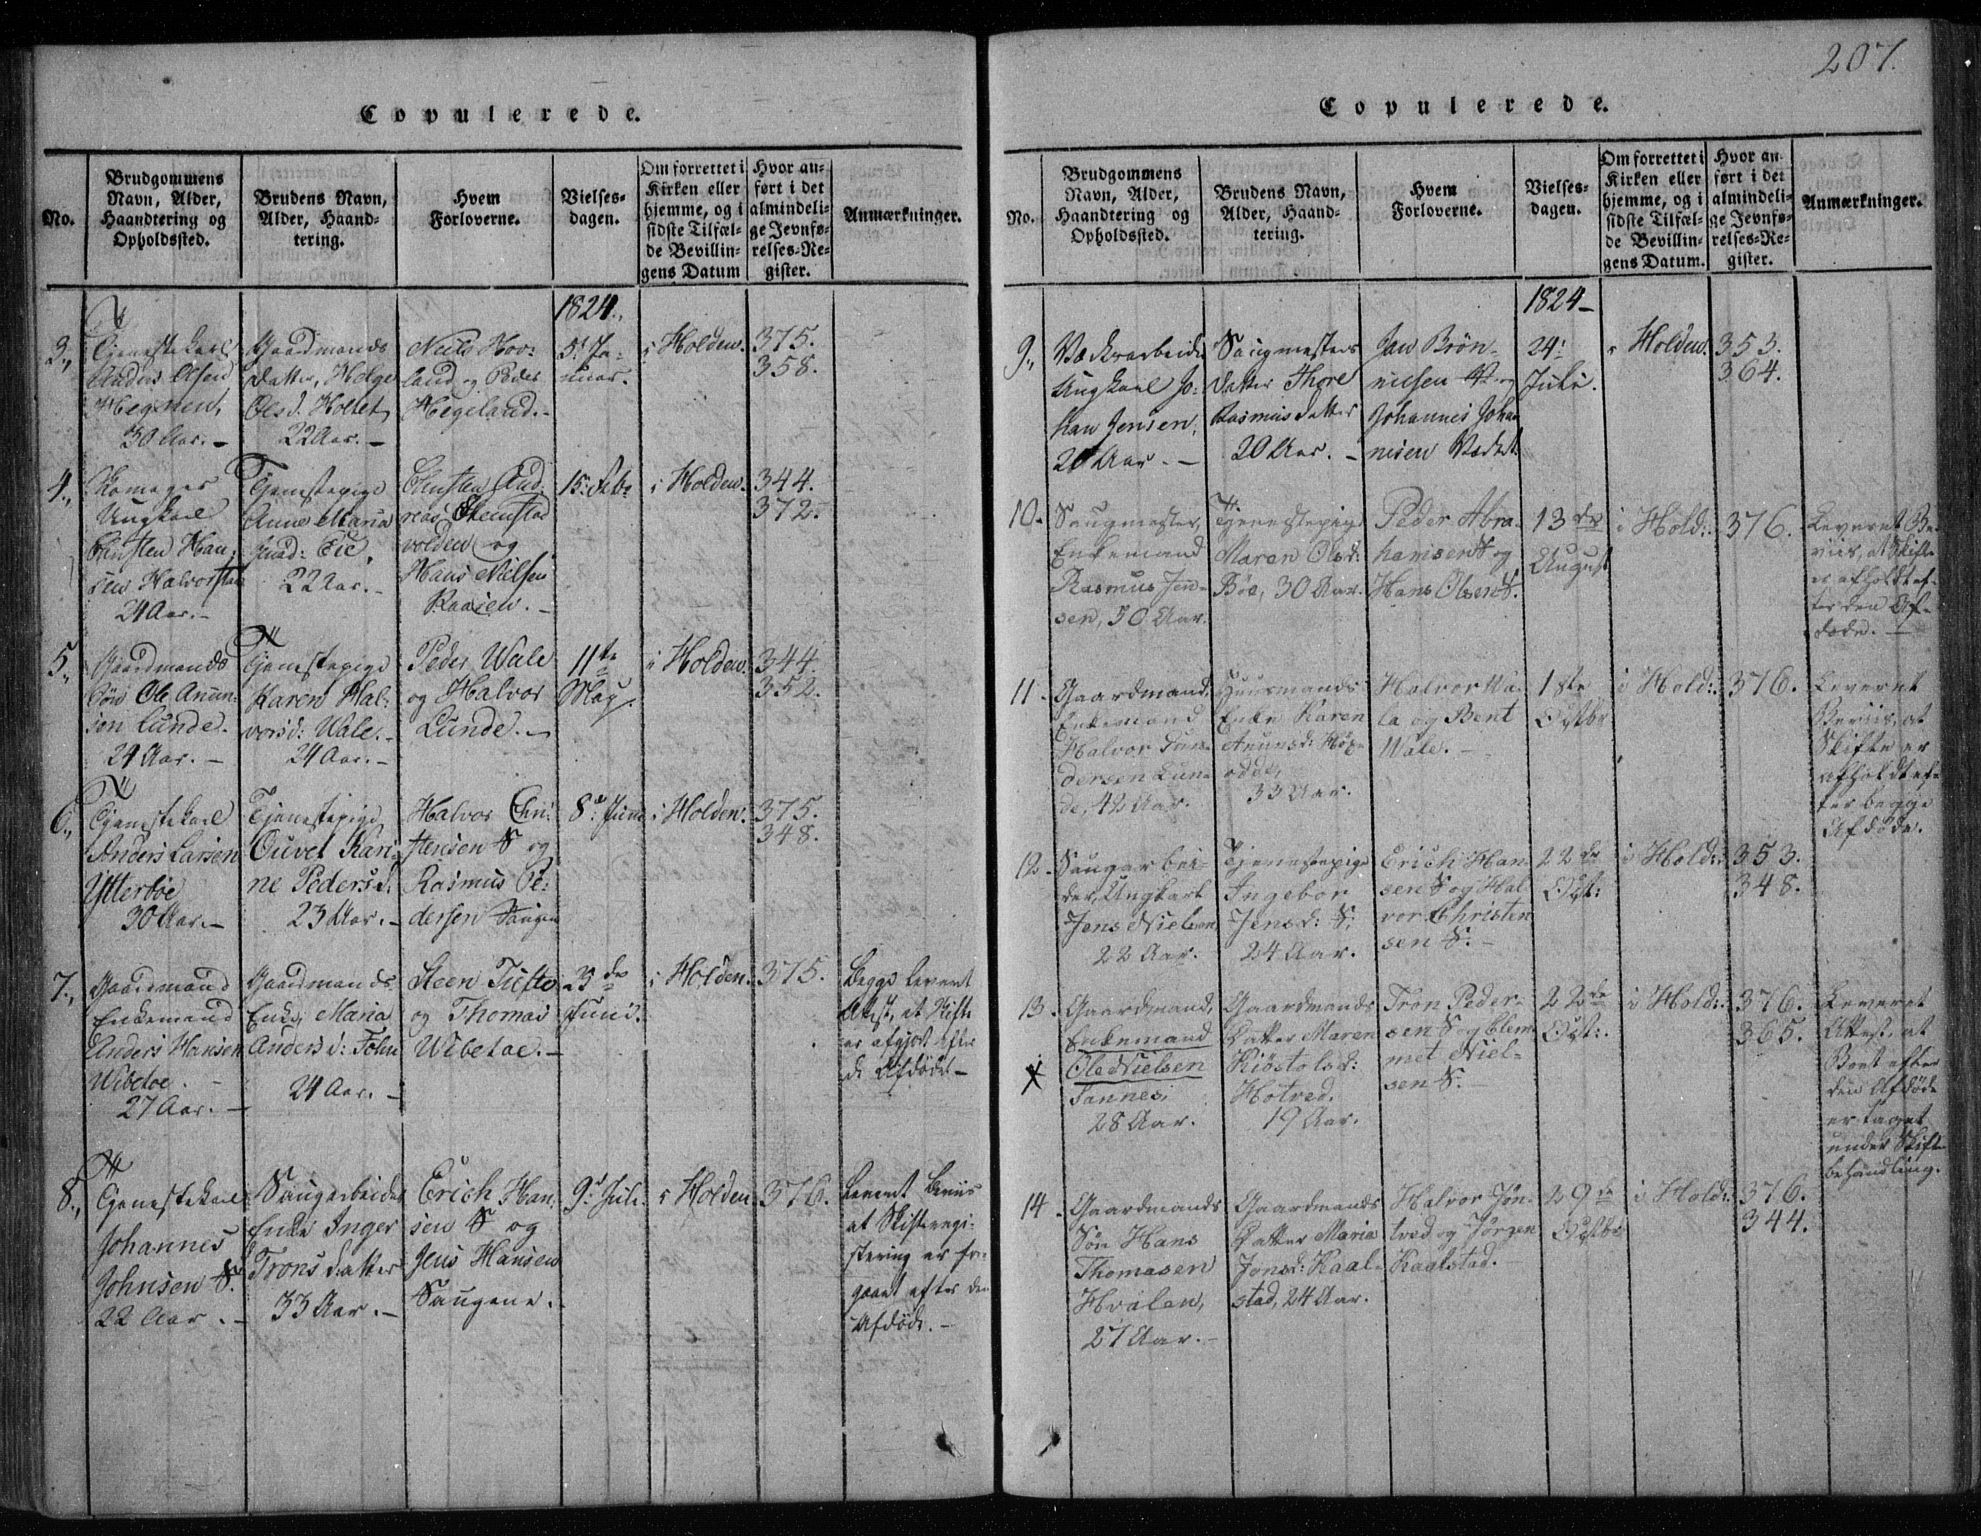 207.
Copulerede.
No.
Brudgommens
Navn, Alder,
Haandtering og
Opholdssted.
Brudens Navn,
Alder, Haand-
tering.
Hvem
Forloverne.
Vielses-
dagen.
Om forrettet i
Kirken eller
hjemme, og i
sidste Tilfæl-
de Bevillin-
gens Datum
Hvor an-
ført i det
almindeli-
ge Jevnfø-
relses-Re-
gister.
Anmærkninger.
1824.
3.,
Tjenestekarl
Anders Olsen
Hegnen,
30 Aar. –
Gaardmands
Datter, Helge
Olsd. Holtet,
22 Aar. –
Niels Hov-
land og Peder
Hegeland. –
5t Ja-
nuar.
i Holden.
375.
358.
4.,
Ungkarl
Christen Han-
sen Halvorstad
24 Aar. –
Tjenestepige
Anne Maria
22 Aar. –
Christen And
reas Stenstad
volden og
Hans Nielsen
Raasen. –
15: Feb:
i Holden.
344.
372.
5.,
Gaardmands
Søn Ole Anun-
sen Lunde.
24 Aar. –
Tjenestepige
Karen Hal-
vorsd: Wale. –
24 Aar. –
Peder Wale
og Halvor
Lunde. –
11te
May.
i Holden.
344.
352.
6.,
Tjenestekarl
Anders Larsen
Ytterbøe
30 Aar. –
Tjenestepige
Ouvel Kari-
ne Pedersd.
23 Aar. –
Halvor Chri-
stensen S og
Rasmus Pe-
dersen Saugen
8de Juni
i Holden.
375.
348.
7.,
Gaardmand
Enkemand
Anders Hansen
Wibetoe. –
27 Aar. –
Gaardmands
Enke, Maria
Andersd: John
24 Aar. –
Steen Tufte
og Thomas
Wibetoe. –
23de
Juni.
i Holden.
375.
Begge levert
Attest, at Skifte
er afgjort efter
de Afdøde –
8.,
Tjenestekarl
Johannes
Johnsen S.
22 Aar. –
Saugarbeider
Enke Inger
Tronsdatter
33 Aar. –
Erich Han-
sen S og
Jens Hansen
Saugene.
9de Juli
i Holden
376.
Levert Beviis
at Skifteregi-
stering er fore-
gaaet efter den
Afdøde. –
Copulerede.
No.
Brudgommens
Navn, Alder,
Haandtering og
Opholdssted.
Brudens Navn,
Alder, Haand-
tering.
Hvem
Forloverne.
Vielses-
dagen.
Om forrettet i
Kirken eller
hjemme, og i
sidste Tilfæl-
de Bevillin-
gens Datum.
Hvor an-
ført i det
almindeli-
ge Jevnfø-
relses-Re-
gister.
Anmærkninger.
1824 –
9.,
Værkarbeider
Ungkarl Jo-
han Jensen,
20 Aar. –
Saugmesters
Datter Thore
Rasmusdatter
20 Aar. –
Jan Brøn-
nielsen og
Johannes Johan
nisen
24:
Juli.
i Holden.
353.
364.
10.
Saugmester,
Enkemand
Rasmus Jen-
sen, 50 Aar.
Tjenestepige
Maren Olsd:
Bøe, 30 Aar.
Peder Abra-
hamsen S og
Hans Olsen S.
13de
August
i Hold:
376.
Leveret Be-
viis, at Skifte
er afholdt ef-
ter den Af-
døde. –
11.
Gaardmand,
Enkemand
Halvor Gun-
dersen Lun-
de, 42 Aar.
Huusmands
Enke Karen
Anunsd: Høg-
odde,
33 Aar.
Halvor Wa-
la og Bent
Wale. –
1ste
Octbr
i Hold:
376.
Leveret
Beviis, at
Skifte er
afholdt ef-
ter begge
Afdøde.
12.
Saugarbei-
der, Ungkarl
Jens Nielsen
22 Aar.
Tjenestepige
Ingebor
Jensd: S.
24 Aar.
Erich Han-
sen S og Hal
vor Christen
sen S. –
22de
Oct:
i Hold:
353.
348.
13.
x
Gaardmand,
Enkemand
Ole Nielsen
Sannes,
28 Aar.
Gaardmands
Datter Maren
Kiøstolsd:
Hotved,
19 Aar.
Tron Peder-
sen S og Clem-
met Niel-
sen S. –
22de
Oct:.
i Hold:
376.
365.
Leveret
Attest, at
Boet efter
den Afdøde
er taget
under Skifte
behandling.
14.
Gaardmands
Søn Hans
Thomasen
Hvalen,
27 Aar. –
Gaardmands
Datter Maria
Jonsd: Kaal-
stad, 24 Aar.
Halvor Jøn-
tved og Jørgen
Kaalstad. –
29de
Octbr
i Hold:
376.
344.